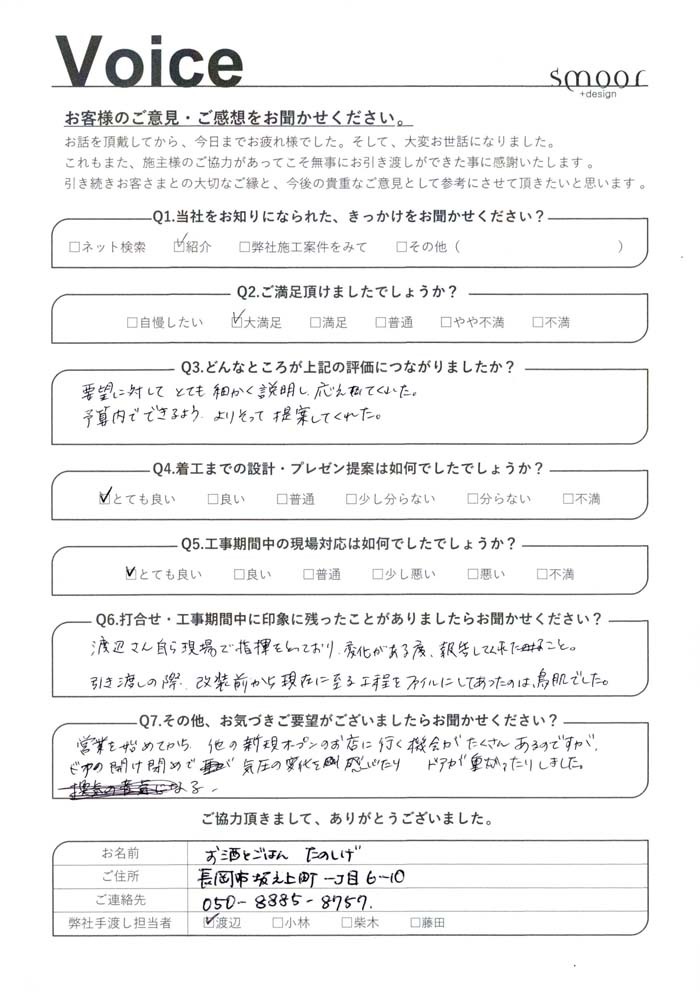 Voice
smoor
+design
お客様のご意見・ご感想をお聞かせください。
お話を頂戴してから、今日までお疲れ様でした。そして、大変お世話になりました。
これもまた、施主様のご協力があってこそ無事にお引き渡しができた事に感謝いたします。
引き続きお客さまとの大切なご縁と、今後の貴重なご意見として参考にさせて頂きたいと思います。
Q1.当社をお知りになられた、きっかけをお聞かせください？
□ネット検索 ☑紹介 □弊社施工案件をみて □その他（ ）
Q2.ご満足頂けましたでしょうか？
□自慢したい ☑大満足 □満足 □普通 □やや不満 □不満
Q3.どんなところが上記の評価につながりましたか？
要望に対して とても 細かく説明し、応えてくれた。
予算内でできるよう、よりそって 提案してくれた。
Q4.着工までの設計・プレゼン提案は如何でしたでしょうか？
☑とても良い □良い □普通 □少し分らない □分らない □不満
Q5.工事期間中の現場対応は如何でしたでしょうか？
☑とても良い □良い □普通 □少し悪い □悪い □不満
Q6.打合せ・工事期間中に印象に残ったことがありましたらお聞かせください？
渡辺さん自ら現場で指揮をとっており、変化がある度、報告してくれたこと。
引き渡しの際、改装前から現在に至る工程をファイルにしてあったのは、鳥肌でした。
Q7.その他、お気づきご要望がございましたらお聞かせください？
営業を始めてから 他の新規オープンのお店に行く機会がたくさんあるのですが、
ドアの開け閉めで 気圧の変化を感じたり ドアが重かったりしました。
ご協力頂きまして、ありがとうございました。
お名前 お酒とごはん たのしげ
ご住所 長岡市坂之上町 一丁目6-10
ご連絡先 050-8885-8757.
弊社手渡し担当者 ☑渡辺 □小林 □柴木 □藤田